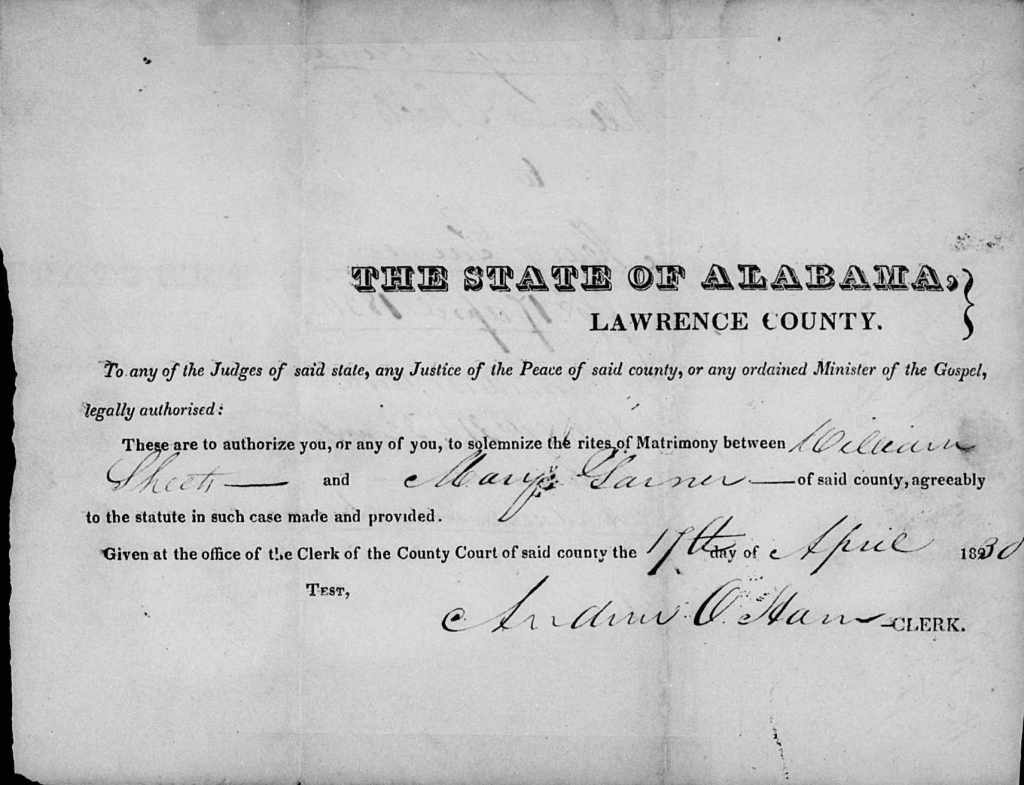 THE STATE OF ALABAMA,
LAWRENCE COUNTY.
To any of the Judges of said state, any Justice of the Peace of said county, or any ordained Minister of the Gospel,
legally authorised:
These are to authorize you, or any of you, to solemnize the rites of Matrimony between William
Sheets — and Mary Garner — of said county, agreeably
to the statute in such case made and provided.
Given at the office of the Clerk of the County Court of said county the 17th day of April 1830
TEST,
Andrew O. Horn CLERK.